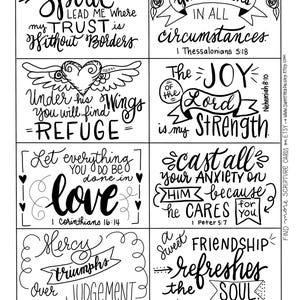 Spirit
LEAD ME where
my TRUST is
Without Borders
IN ALL
circumstances
1 Thessalonians 5:18
Under his Wings
You will find
REFUGE
The JOY
OF THE
Lord
is my STRENGTH
Nehemiah 8:10
Let everything
YOU DO BE
done in
love
1 Corinthians 16:14
cast all
your ANXIETY ON
HIM because
he CARES for
you
1 Peter 5:7
Mercy
triumphs
Over JUDGEMENT
a sweet FRIENDSHIP
refreshes
the SOUL
FIND MORE SCRIPTURE CARDS on ETSY